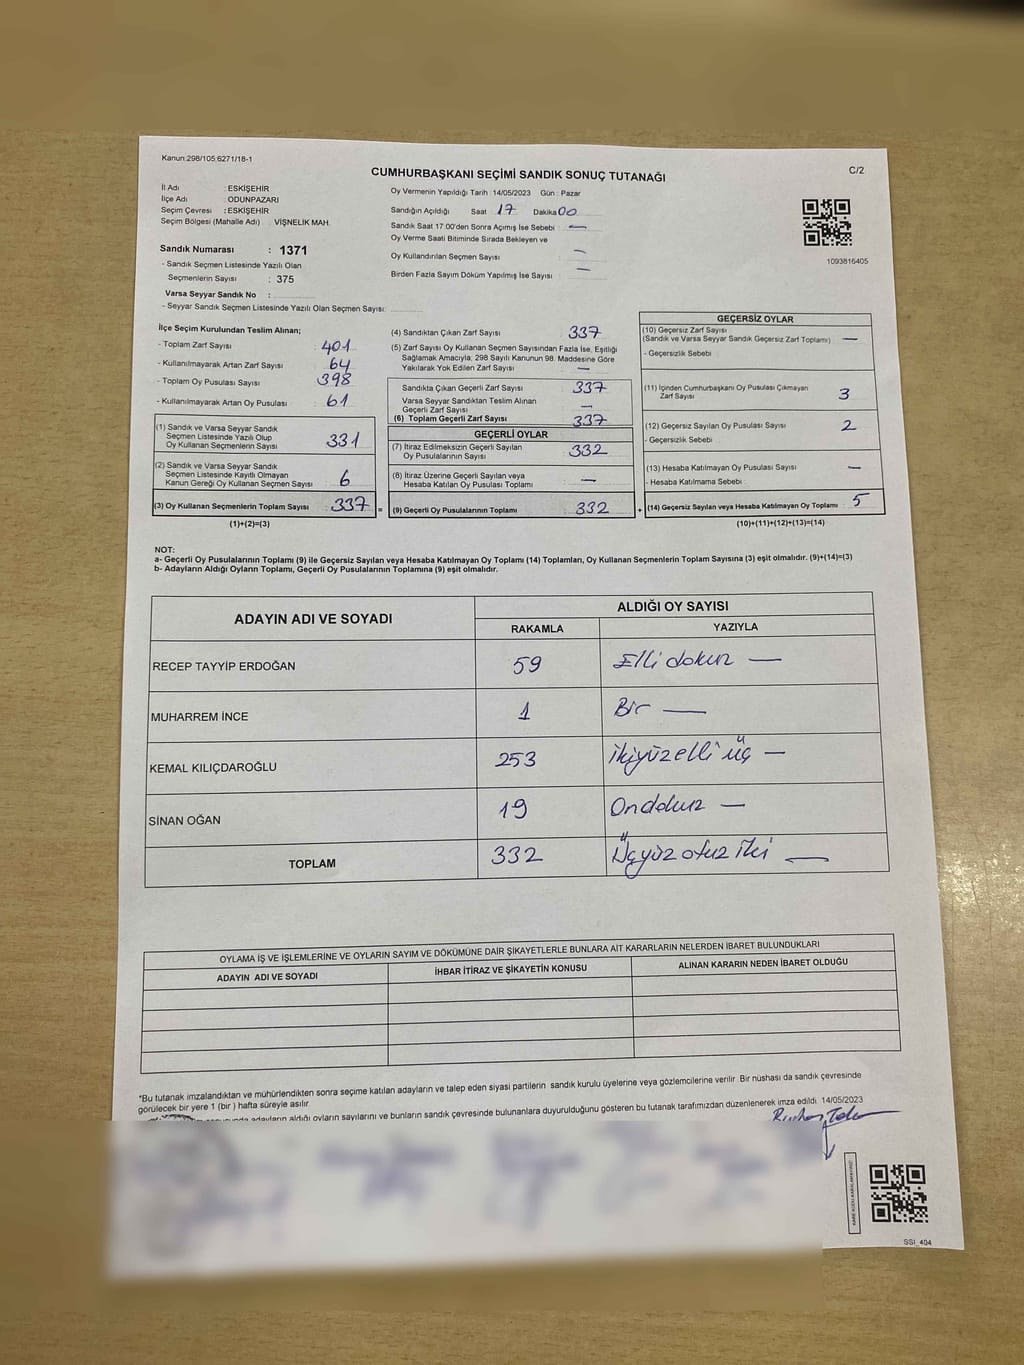 Kanun:298/105;6271/18-1
C/2
CUMHURBAŞKANI SEÇİMİ SANDIK SONUÇ TUTANAĞI
İl Adı : ESKİŞEHİR
İlçe Adı : ODUNPAZARI
Seçim Çevresi : ESKİŞEHİR
Seçim Bölgesi (Mahalle Adı) : VİŞNELİK MAH.
Sandık Numarası : 1371
- Sandık Seçmen Listesinde Yazılı Olan
Seçmenlerin Sayısı : 375
Varsa Seyyar Sandık No :
- Seyyar Sandık Seçmen Listesinde Yazılı Olan Seçmen Sayısı:
Oy Vermenin Yapıldığı Tarih : 14/05/2023 Gün : Pazar
Sandığın Açıldığı Saat 17 Dakika 00
Sandık Saat 17:00'den Sonra Açımış İse Sebebi : —
Oy Verme Saati Bitiminde Sırada Bekleyen ve
Oy Kullandırılan Seçmen Sayısı —
Birden Fazla Sayım Döküm Yapılmış İse Sayısı : —
1093816405
İlçe Seçim Kurulundan Teslim Alınan;
- Toplam Zarf Sayısı : 401
- Kullanılmayarak Artan Zarf Sayısı : 64
- Toplam Oy Pusulası Sayısı : 398
- Kullanılmayarak Artan Oy Pusulası : 61
(1) Sandık ve Varsa Seyyar Sandık
Seçmen Listesinde Yazılı Olup
Oy Kullanan Seçmenlerin Sayısı : 331
(2) Sandık ve Varsa Seyyar Sandık
Seçmen Listesinde Kayıtlı Olmayan
Kanun Gereği Oy Kullanan Seçmen Sayısı : 6
(3) Oy Kullanan Seçmenlerin Toplam Sayısı : 337 =
(1)+(2)=(3)
(4) Sandıktan Çıkan Zarf Sayısı : 337
(5) Zarf Sayısı Oy Kullanan Seçmen Sayısından Fazla İse, Eşitliği
Sağlamak Amacıyla; 298 Sayılı Kanunun 98. Maddesine Göre
Yakılarak Yok Edilen Zarf Sayısı : —
Sandıkta Çıkan Geçerli Zarf Sayısı : 337
Varsa Seyyar Sandıktan Teslim Alınan
Geçerli Zarf Sayısı : —
(6) Toplam Geçerli Zarf Sayısı : 337
GEÇERLİ OYLAR
(7) İtiraz Edilmeksizin Geçerli Sayılan
Oy Pusulalarının Sayısı : 332
(8) İtiraz Üzerine Geçerli Sayılan veya
Hesaba Katılan Oy Pusulası Toplamı : —
(9) Geçerli Oy Pusulalarının Toplamı : 332 +
GEÇERSİZ OYLAR
(10) Geçersiz Zarf Sayısı
(Sandık ve Varsa Seyyar Sandık Geçersiz Zarf Toplamı) : —
- Geçersizlik Sebebi :
(11) İçinden Cumhurbaşkanı Oy Pusulası Çıkmayan
Zarf Sayısı : 3
(12) Geçersiz Sayılan Oy Pusulası Sayısı : 2
- Geçersizlik Sebebi :
(13) Hesaba Katılmayan Oy Pusulası Sayısı : —
- Hesaba Katılmama Sebebi :
(14) Geçersiz Sayılan veya Hesaba Katılmayan Oy Toplamı : 5
(10)+(11)+(12)+(13)=(14)
NOT:
a- Geçerli Oy Pusulalarının Toplamı (9) ile Geçersiz Sayılan veya Hesaba Katılmayan Oy Toplamı (14) Toplamları, Oy Kullanan Seçmenlerin Toplam Sayısına (3) eşit olmalıdır. (9)+(14)=(3)
b- Adayların Aldığı Oyların Toplamı, Geçerli Oy Pusulalarının Toplamına (9) eşit olmalıdır.
ADAYIN ADI VE SOYADI
ALDIĞI OY SAYISI
RAKAMLA YAZIYLA
RECEP TAYYİP ERDOĞAN 59 Elli dokuz —
MUHARREM İNCE 1 Bir —
KEMAL KILIÇDAROĞLU 253 İkiyüzelli üç —
SİNAN OĞAN 19 Ondokuz —
TOPLAM 332 Üçyüz otuz iki —
OYLAMA İŞ VE İŞLEMLERİNE VE OYLARIN SAYIM VE DÖKÜMÜNE DAİR ŞİKAYETLERLE BUNLARA AİT KARARLARIN NELERDEN İBARET BULUNDUKLARI
ADAYIN ADI VE SOYADI İHBAR İTİRAZ VE ŞİKAYETİN KONUSU ALINAN KARARIN NEDEN İBARET OLDUĞU
*Bu tutanak imzalandıktan ve mühürlendikten sonra seçime katılan adayların ve talep eden siyasi partilerin sandık kurulu üyelerine veya gözlemcilerine verilir. Bir nüshası da sandık çevresinde
görülecek bir yere 1 (bir) hafta süreyle asılır.
adayların aldığı oyların sayılarını ve bunların sandık çevresinde bulunanlara duyurulduğunu gösteren bu tutanak tarafımızdan düzenlenerek imza edildi. 14/05/2023
SSI_404